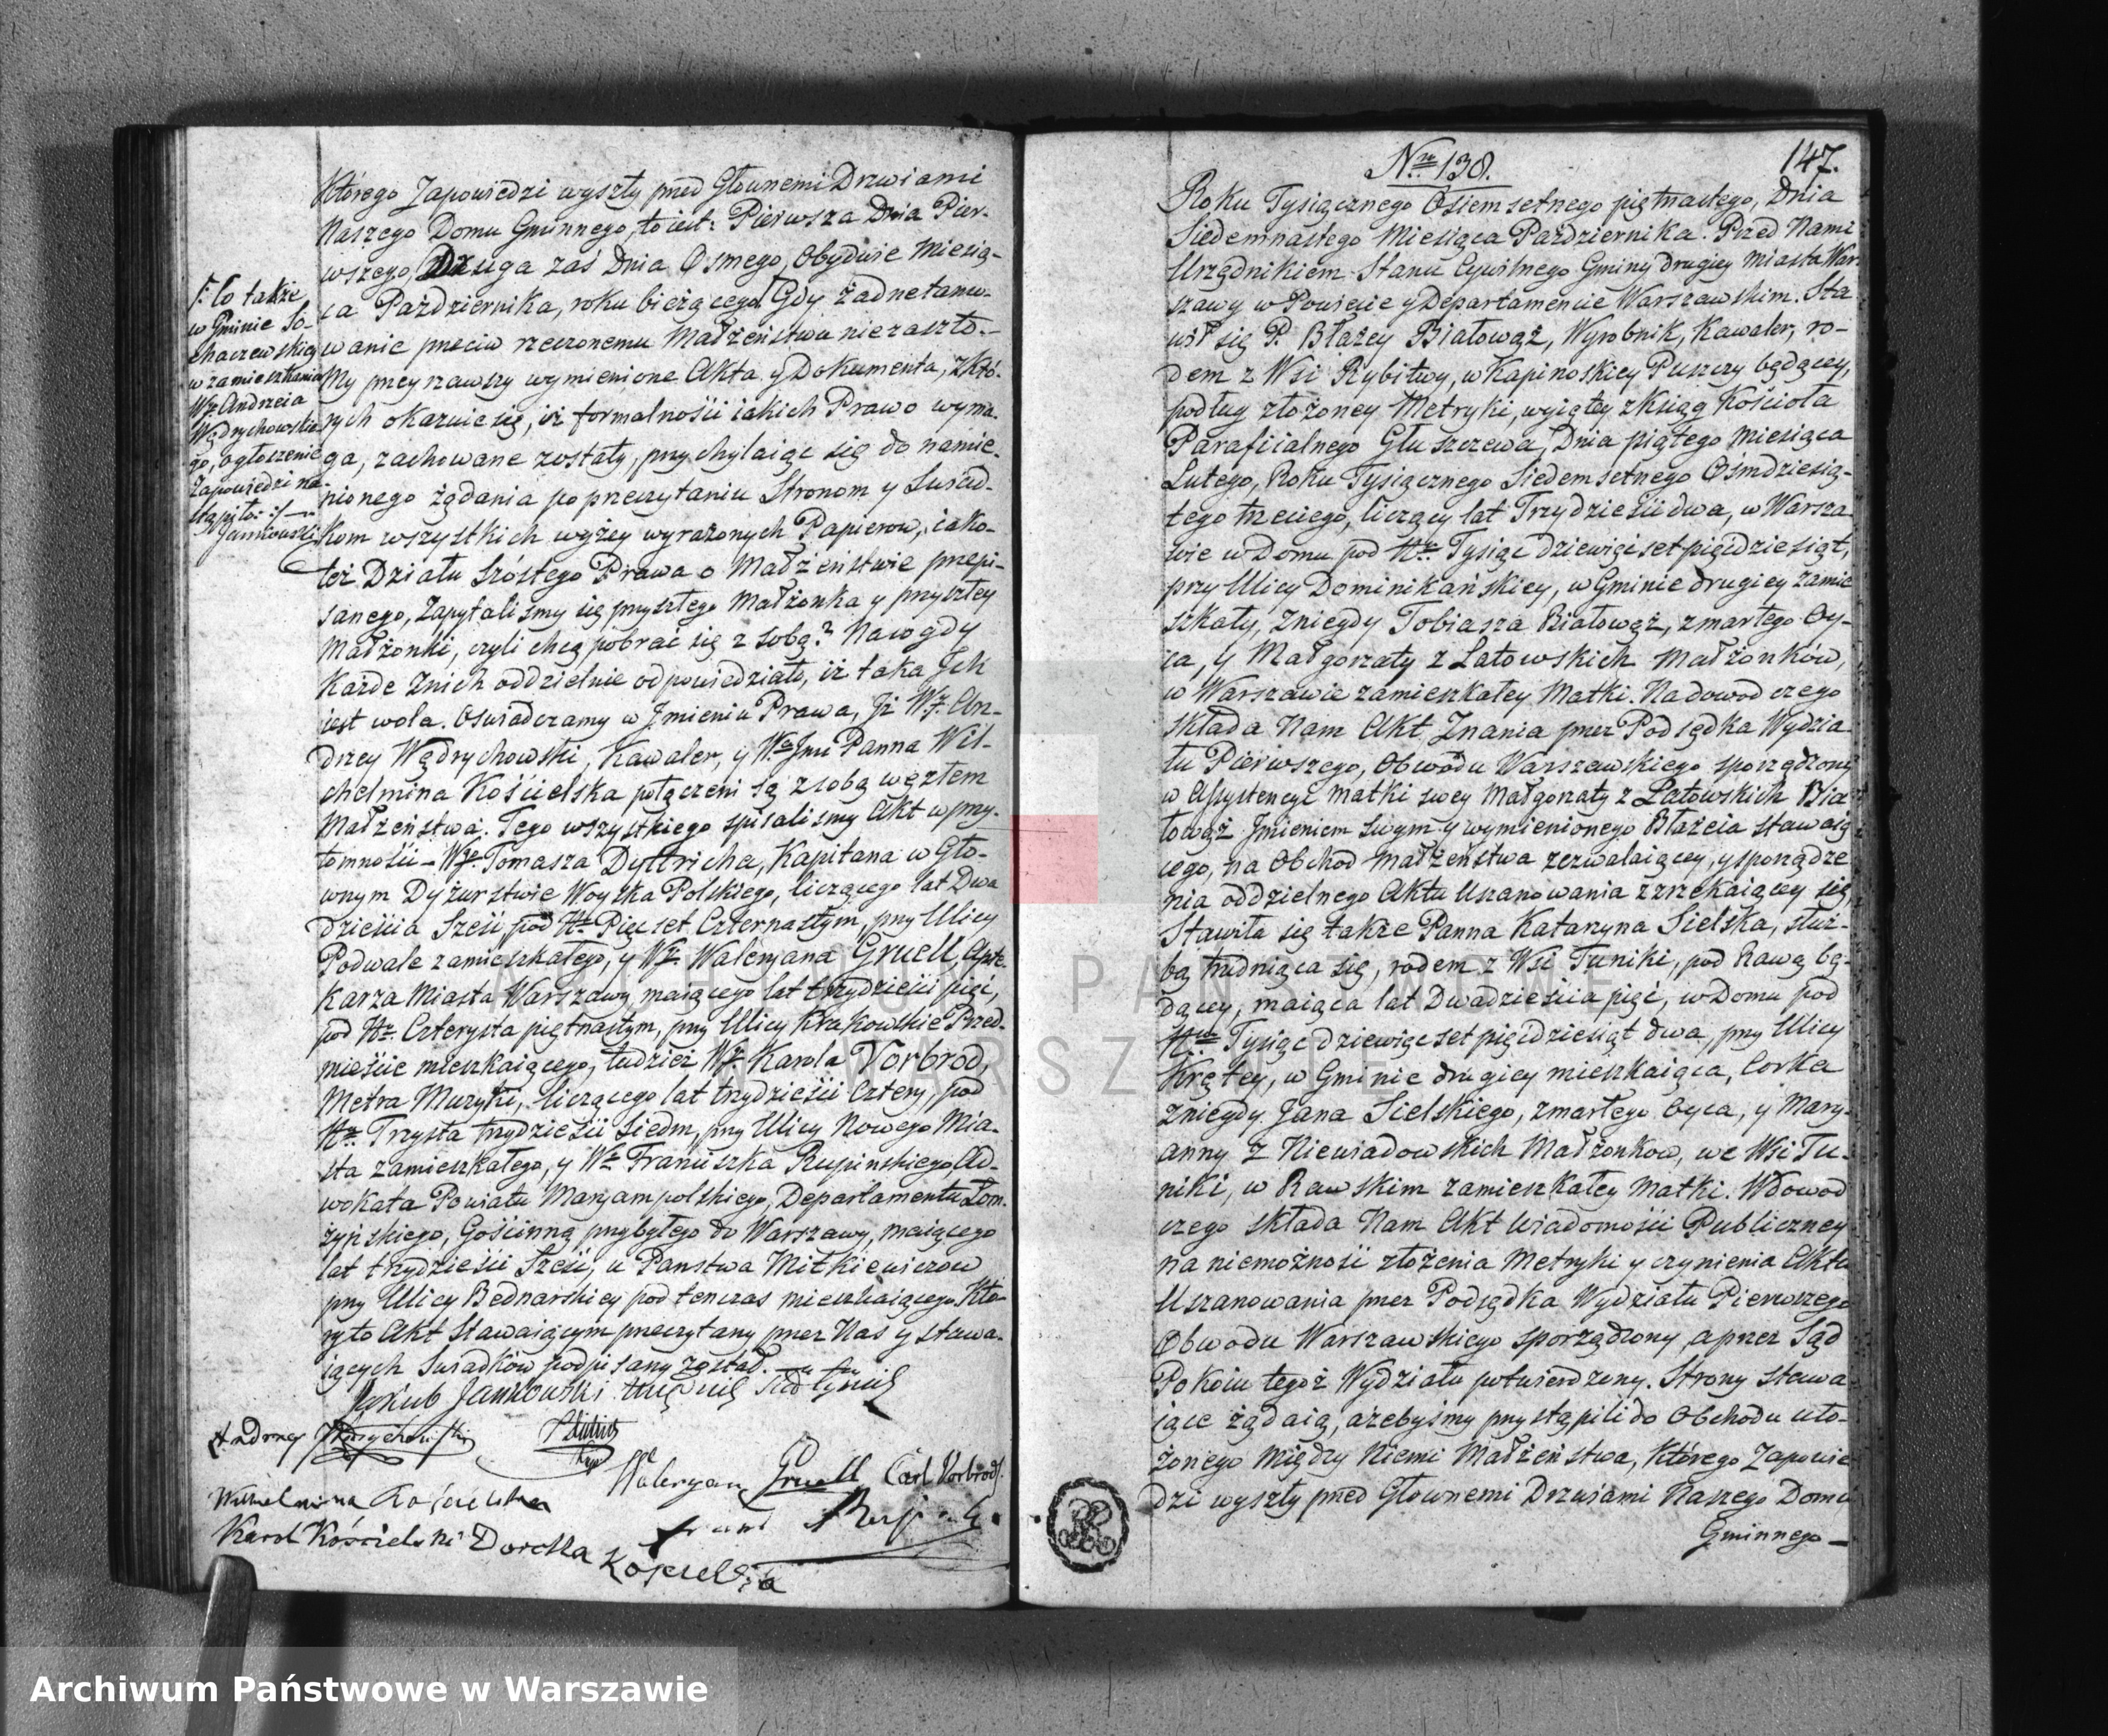 Którego Zapowiedzi wyszły przed Głownemi Drzwiami
Naszego Domu Gminnego, to iest: Pierwsza Dnia Pier-
wszego, Druga zaś Dnia Osmego, Obydwie Miesią-
ca Października, roku bieżącego. Gdy żadne tamo-
wanie przeciw rzeczonemu Małżeństwu nie zaszło.-
My przeyrzawszy wymienione Akta y Dokumenta, z któ-
rych okazuie się, iż formalności iakich Prawo wyma-
ga, zachowane zostały, przychylaiąc się do namie-
nionego żądania po przeczytaniu Stronom y Swiad-
kom wszystkich wyżey wyrażonych Papierow, iako-
też Działu Szóstego Prawa o Małżeństwie przepi-
sanego, Zapytaliśmy się przyszłego Małżonka y przyszłey
Małżonki, czyli chcą pobrać się z sobą? Na co gdy
Każde z nich oddzielnie odpowiedziało, iż taka Jch
iest wola. Oswiadczamy w Jmieniu Prawa, Jż Wż. An-
drzey Wędrychowski, Kawaler, y Wa Jmć Panna Wil-
chelmina Kościelska połączeni są z sobą węzłem
Małżeństwa. Tego wszystkiego spisaliśmy Akt w przy-
tomności - Wgo Tomasza Dyttricha, Kapitana w Gło-
wnym Dyżurstwie Woyska Polskiego, liczącego lat Dwa
dzieścia Sześć, pod Nr. Pięćset Czternastym, przy Ulicy
Podwale zamieszkałego, y Wż. Waleryana Gruell, Apte-
karza Miasta Warszawy, maiącego lat trzydzieści pięć,
pod Nr. Czterysta piętnastym, przy Ulicy Krakowskie Przed-
mieście mieszkaiącego, tudzież Wż. Karola Vorbrod,
Metra Muzyki, liczącego lat trzydzieści Cztery, pod
Nr. Trzysta trzydzieści Siedm, przy Ulicy Nowego Mia-
sta zamieszkałego, y Wo Franciszka Rupinskiego Ad-
wokata Powiatu Maryampolskiego, Departamentu Łom-
żyńskiego, Gościnną przybyłego do Warszawy, maiącego
lat trzydzieści Sześć, u Państwa Mitkiewiczow
przy Ulicy Bednarskiey pod ten czas mieszkaiącego. Któ-
ry to Akt Stawaiącym przeczytany przez Nas y stawa-
iących Swiadków podpisany został.
Jakub Jankowski
Andrzey Wędrychowski
Waleryan Gruell Carl Vorbrodt
Wilhelmina Kościelska
Karol Kościelski Dorotha
Kościelska
/: Co także
w Gminie So-
chaczewskiey
w zamieszkania
Wż. Andrzeia
Wędrychowskie-
go, ogłoszenie
Zapowiedzi na-
stąpiło :/ -
Jankowski
Nro 138.
147.
Roku Tysiącznego Osiemsetnego piętnastego, Dnia
Siedemnastego Miesiąca Października. Przed Nami
Urzędnikiem Stanu Cywilnego Gminy drugiey Miasta War-
szawy w Powiecie y Departamencie Warszawskim. Sta
wił się P. Błażey Białowąż, Wyrobnik, Kawaler, ro-
dem z Wsi Rybitwy, w Kapinoskiey Puszczy będącey,
podług złożoney Metryki, wyiętey z Ksiąg Kościoła
Parafiialnego Głuszczewa, Dnia piątego Miesiąca
Lutego, Roku Tysiącznego Siedemsetnego Ośmdziesią-
tego trzeciego, liczący lat Trzydzieści dwa, w Warsza-
wie w Domu pod Nro Tysiąc dziewięćset pięćdziesiąt,
przy Ulicy Dominikańskiey, w Gminie drugiey zamie
szkały, z niegdy Tobiasza Białowąż, zmarłego Oy-
ca, y Małgorzaty z Latowskich Małżonków,
w Warszawie zamieszkałey Matki. Na dowod czego
składa Nam Akt Znania przez Podsędka Wydzia-
łu Pierwszego, Obwodu Warszawskiego sporządzony
w Assystencyi Matki swey Małgorzaty z Latowskich Bia
łowąż Jmieniem swym y wymienionego Błażeia stawaią
cego, na Obchod Małżeństwa zezwalaiącey, y sporządze
nia oddzielnego Aktu Uszanowania zrzekaiącey się,
Stawiła się także Panna Katarzyna Sielska, służ-
bą trudniąca się, rodem z Wsi Tuniki, pod Rawą bę-
dącey, maiąca lat Dwadzieścia pięć, w Domu pod
Nrem Tysiąc dziewięćset pięćdziesiąt dwa, przy Ulicy
Krętey, w Gminie drugiey mieszkaiąca, Corka
z niegdy Jana Sielskiego, zmarłego Oyca, y Mary-
anny z Niewiadowskich Małżonkow, we Wsi Tu-
niki, w Rawskim zamieszkałey Matki. W dowod
czego składa Nam Akt Wiadomości Publiczney
na niemożność złożenia Metryki y czynienia Aktu
Uszanowania przez Podsędka Wydziału Pierwszego
Obwodu Warszawskiego sporządzony, a przez Sąd
Pokoiu tegoż Wydziału potwierdzony. Strony Stawa-
iące żądaią, ażebyśmy przystąpili do Obchodu uło-
żonego Między Niemi Małżeństwa, Którego Zapowie
dzi wyszły przed Głownemi Drzwiami Naszego Domu
Gminnego -
ARCHIWUM PAŃSTWOWE
W WARSZAWIE
Archiwum Państwowe w Warszawie